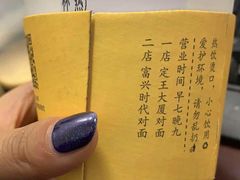 热饮烫口，小心饮用
爱护环境，请勿乱扔
营业时间 早七晚九
一店 定王大厦对面
二店 富兴时代对面